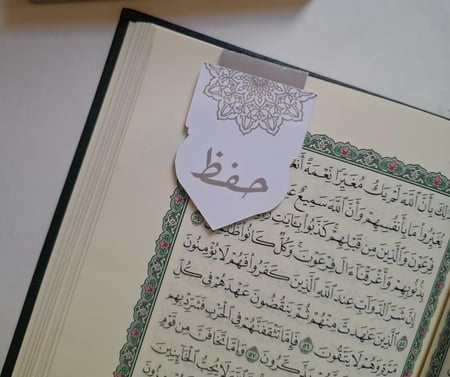 حفظ
بِأَنَّ ٱللَّهَ لَمْ يَكُ مُغَيِّرًا نِّعْمَةً
يُغَيِّرُوا۟ مَا بِأَنفُسِهِمْ وَأَنَّ ٱللَّهَ سَمِيعٌ
فِرْعَوْنَ وَٱلَّذِينَ مِن قَبْلِهِمْ كَذَّبُوا۟ بِـَٔايَـٰتِ
بِذُنُوبِهِمْ وَأَغْرَقْنَآ ءَالَ فِرْعَوْنَ وَكُلٌّ كَانُوا۟
إِنَّ شَرَّ ٱلدَّوَآبِّ عِندَ ٱللَّهِ ٱلَّذِينَ كَفَرُوا۟ فَهُمْ لَا يُؤْمِنُونَ
ٱلَّذِينَ عَـٰهَدتَّ مِنْهُمْ ثُمَّ يَنقُضُونَ عَهْدَهُمْ فِى كُلِّ
مَرَّةٍ وَهُمْ لَا يَتَّقُونَ ٥٦ فَإِمَّا تَثْقَفَنَّهُمْ فِى ٱلْحَرْبِ فَشَرِّدْ بِهِم
يَذَّكَّرُونَ ٥٧ وَإِمَّا تَخَافَنَّ مِن قَوْمٍ
لَا يُحِبُّ ٱلْخَآئِنِينَ